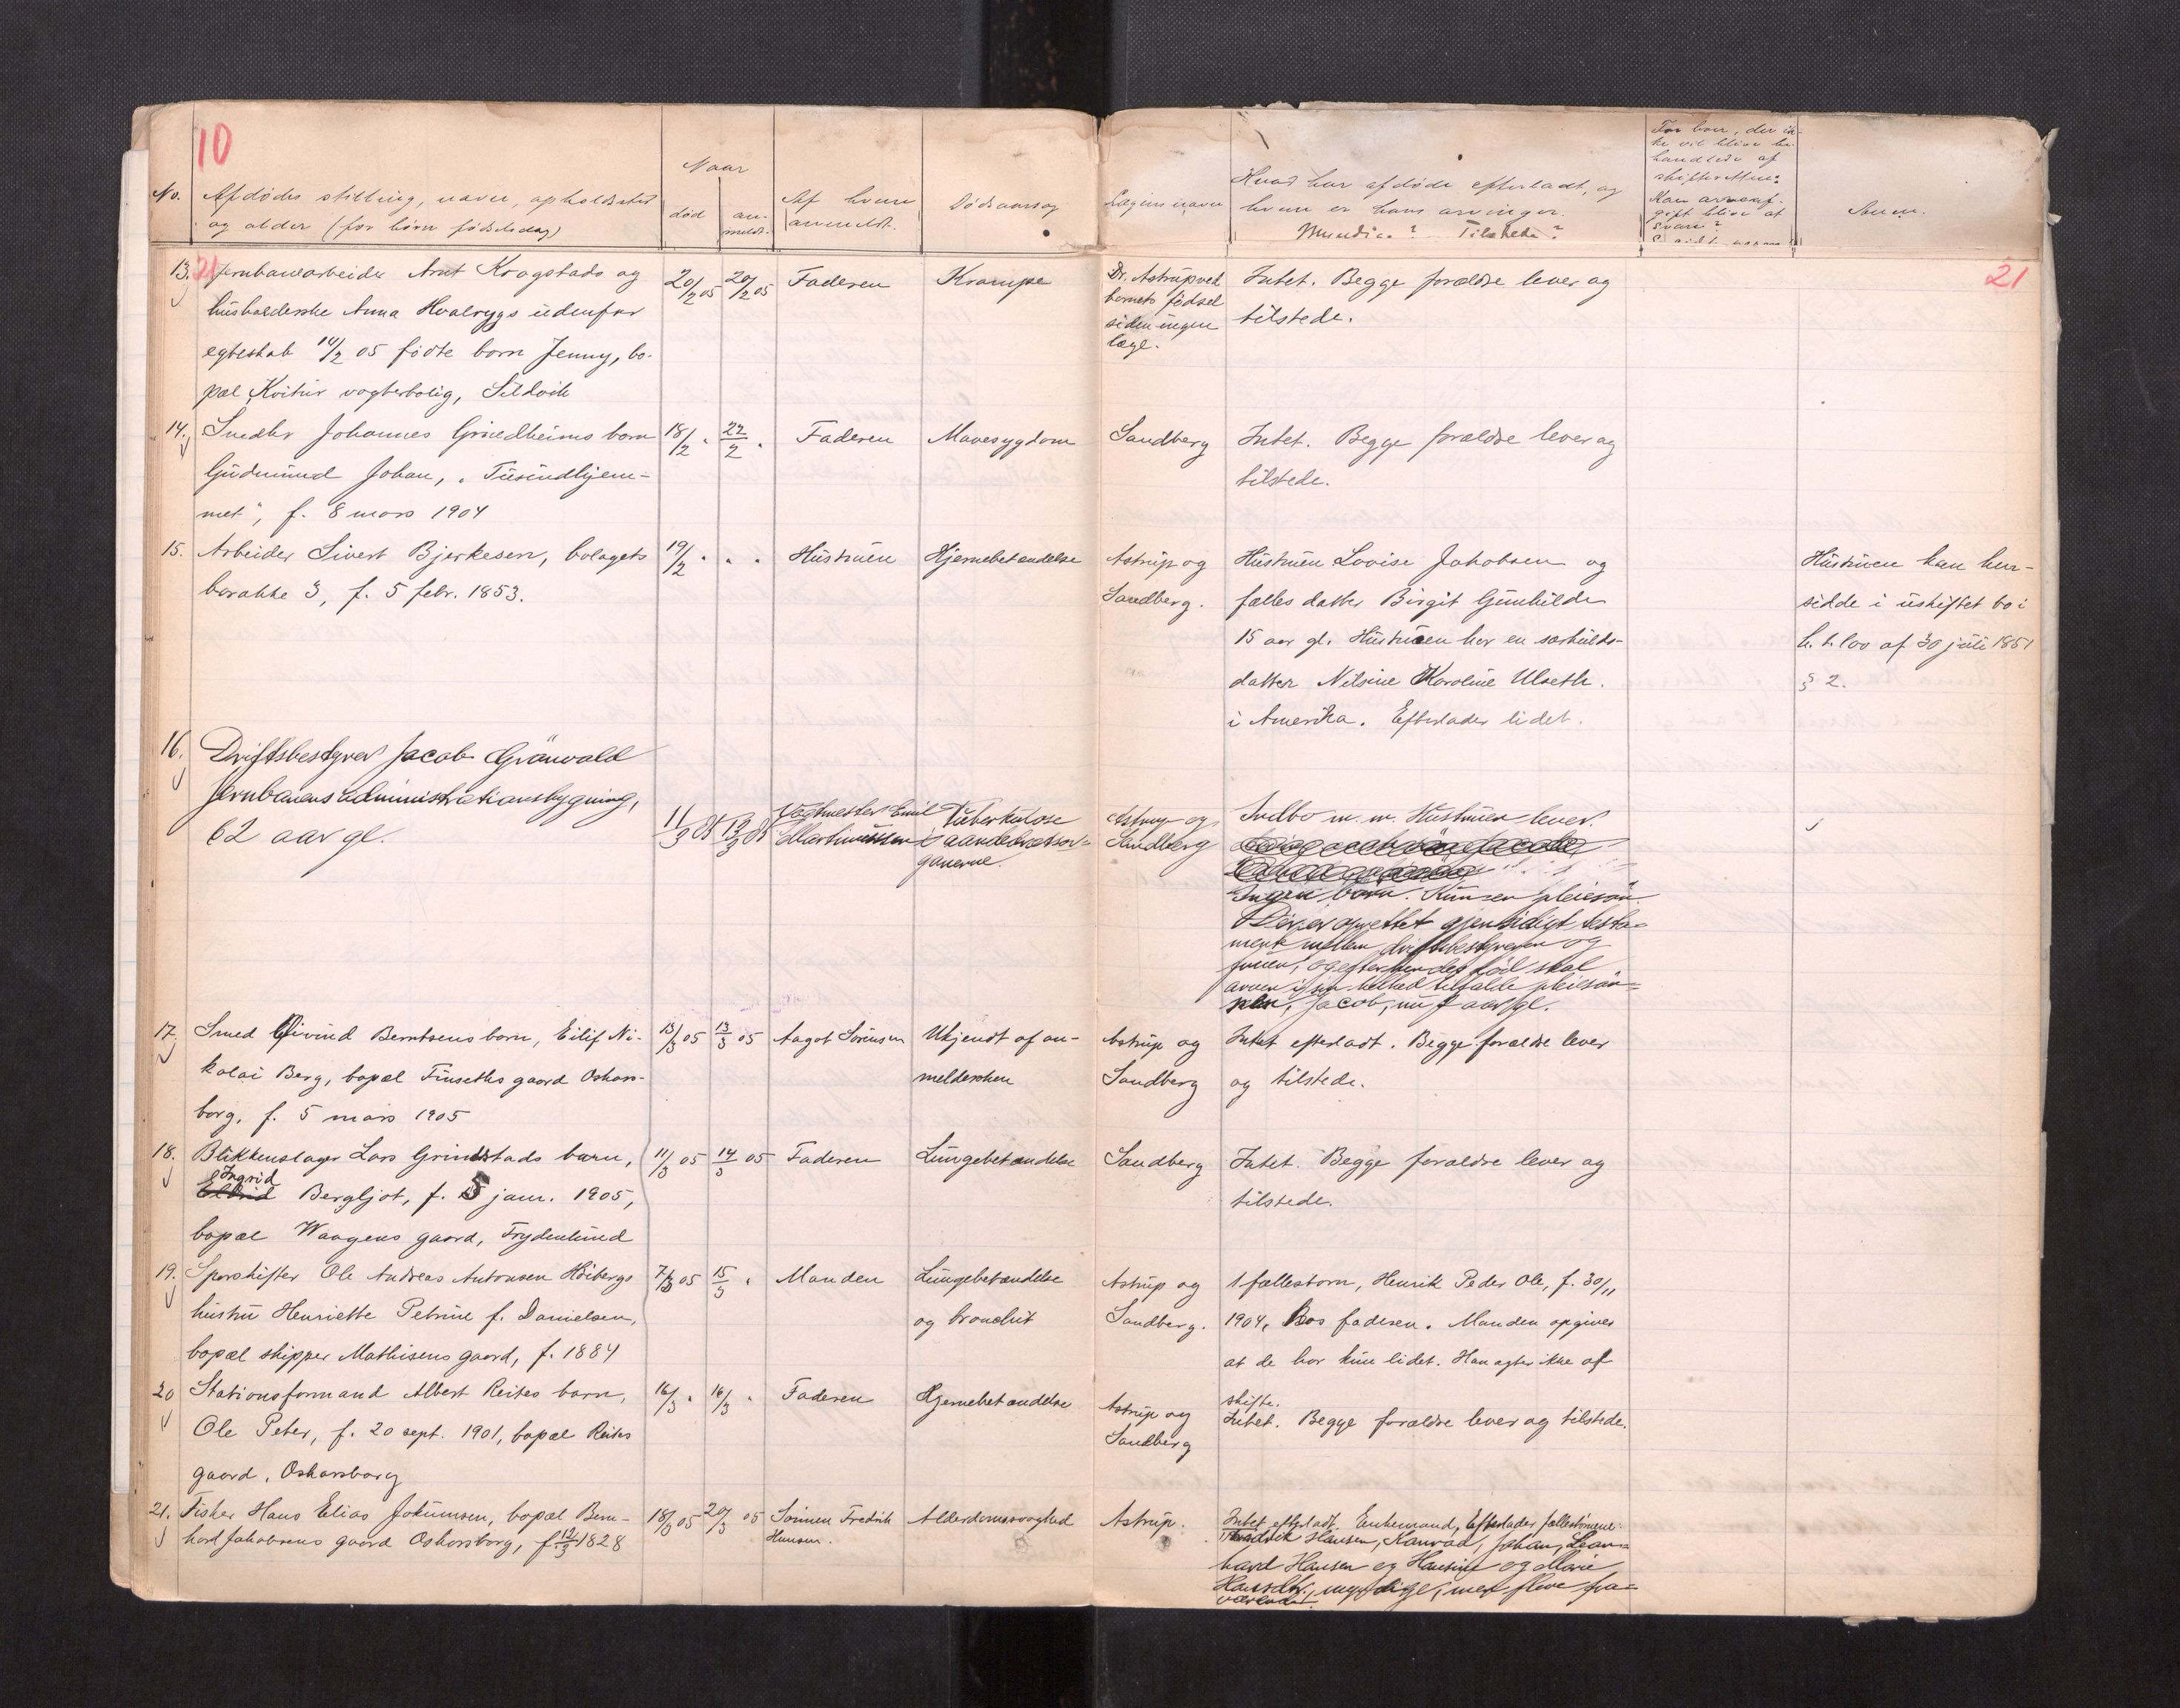 10
No.
Afdødes stilling, navn, opholdssted
og alder (for børn fødselsdag)
Naar
død
an-
meldt.
Af hvem
anmeldt.
Dødsaarsag
Lægens navn
Hvad har afdøde efterladt, og
hvem er hans arvinger.
Myndige? Tilstede?
For boer, der ik-
ke vil blive be-
handlede af
skifteretten:
Kan arveaf-
gift blive at
svare?
Anm.
21
13. Jernbanearbeider Arnt Krogstads og
husholderske Anna Hvalryggs udenfor
egteskab 14/2 05 fødte barn Jenny, bo-
pæl Kvitur vogterbolig, Sildvik
20/2 05
20/2 05
Faderen
Krampe
Dr. Astrup ved
barnets fødsel
siden ingen
læge.
Intet. Begge forældre lever og
tilstede.
21
14. Snedker Johannes Grindheims barn
Gudmund Johan, "Tusindhjem-
met", f. 8 mars 1904
18/2 "
22/2 "
Faderen
Mavesygdom
Sandberg
Intet. Begge forældre lever og
tilstede.
15. Arbeider Sivert Bjerkesen, bolagets
barakke 3, f. 5 febr. 1853.
19/2 "
" "
Hustruen
Hjernebetændelse
Astrup og
Sandberg.
Hustruen Lovise Jakobsen og
fælles datter Birgit Gunhilde
15 aar gl. Hustruen har en særkulds-
datter Nilsine Karoline Ulseth.
i Amerika. Efterlader lidet.
Hustruen kan hen-
sidde i uskiftet bo i
h. t. lov af 30 juli 1851
§ 2.
16. Driftsbestyrer Jacob Grönvold
Jernbanens administrationsbygning,
62 aar gl.
11/3 05
13/3 05
Vagtmester Emil
Martinussen
Tuberkulose
i aandedrætsor-
ganerne.
Astrup og
Sandberg
Indbo m. m. Hustruen lever.
Ingen børn. Kun en pleiesøn.
Der er oprettet gjensidigt testa-
mente mellem driftsbestyreren og
fruen, og efter hendes død skal
arven i sin helhed tilfalde pleiesøn-
nen, Jacob, nu 7 aar gl.
17. Smed Eivind Berntsens barn, Eilif Ni-
kolai Berg, bopæl Finseths gaard Oskars-
borg, f. 5 mars 1905
13/3 05
13/3 05
Aagot Sörensen
Ukjendt af an-
meldersken
Astrup og
Sandberg
Intet efterladt. Begge forældre lever
og tilstede.
18. Blikkenslager Lars Grindstads barn,
Ingrid
Bergljot, f. 5 janr. 1905,
bopæl Waagens gaard, Frydenlund
11/3 05
14/3 05
Faderen
Lungebetændelse
Sandberg
Intet. Begge forældre lever og
tilstede.
19. Sporskifter Ole Andreas Antonsen Høibergs
hustru Henriette Petrine f. Danielsen,
bopæl skipper Mathisens gaard, f. 1884
7/3 05
15/3 "
Manden
Lungebetændelse
og bronchit
Astrup og
Sandberg.
1 fællesbarn, Henrik Peder Ole, f. 30/11
1904, Hos faderen. Manden opgiver
at de har kun lidet. Han agter ikke at
skifte.
20 Stationsformand Albert Reites barn,
Ole Peter, f. 20 sept. 1901, bopæl Reites
gaard, Oskarsborg
16/3 "
16/3 "
Faderen
Hjernebetændelse
Astrup og
Sandberg
Intet. Begge forældre lever og tilstede.
21. Fisker Hans Elias Jokumsen, bopæl Bern-
hard Jakobsens gaard Oskarsborg, f. 12/3 1828
18/3 05
20/3 05
Sönnen Fredrik
Hansen.
Alderdomssvaghed
Astrup.
Intet efterladt. Enkemand, Efterlader fællesbørnene:
Fredrik Hansen, Konrad, Johan, Lean-
hard Hansen og Hansine og Marie
Hansdtr., myndige, men flere fra-
værende.